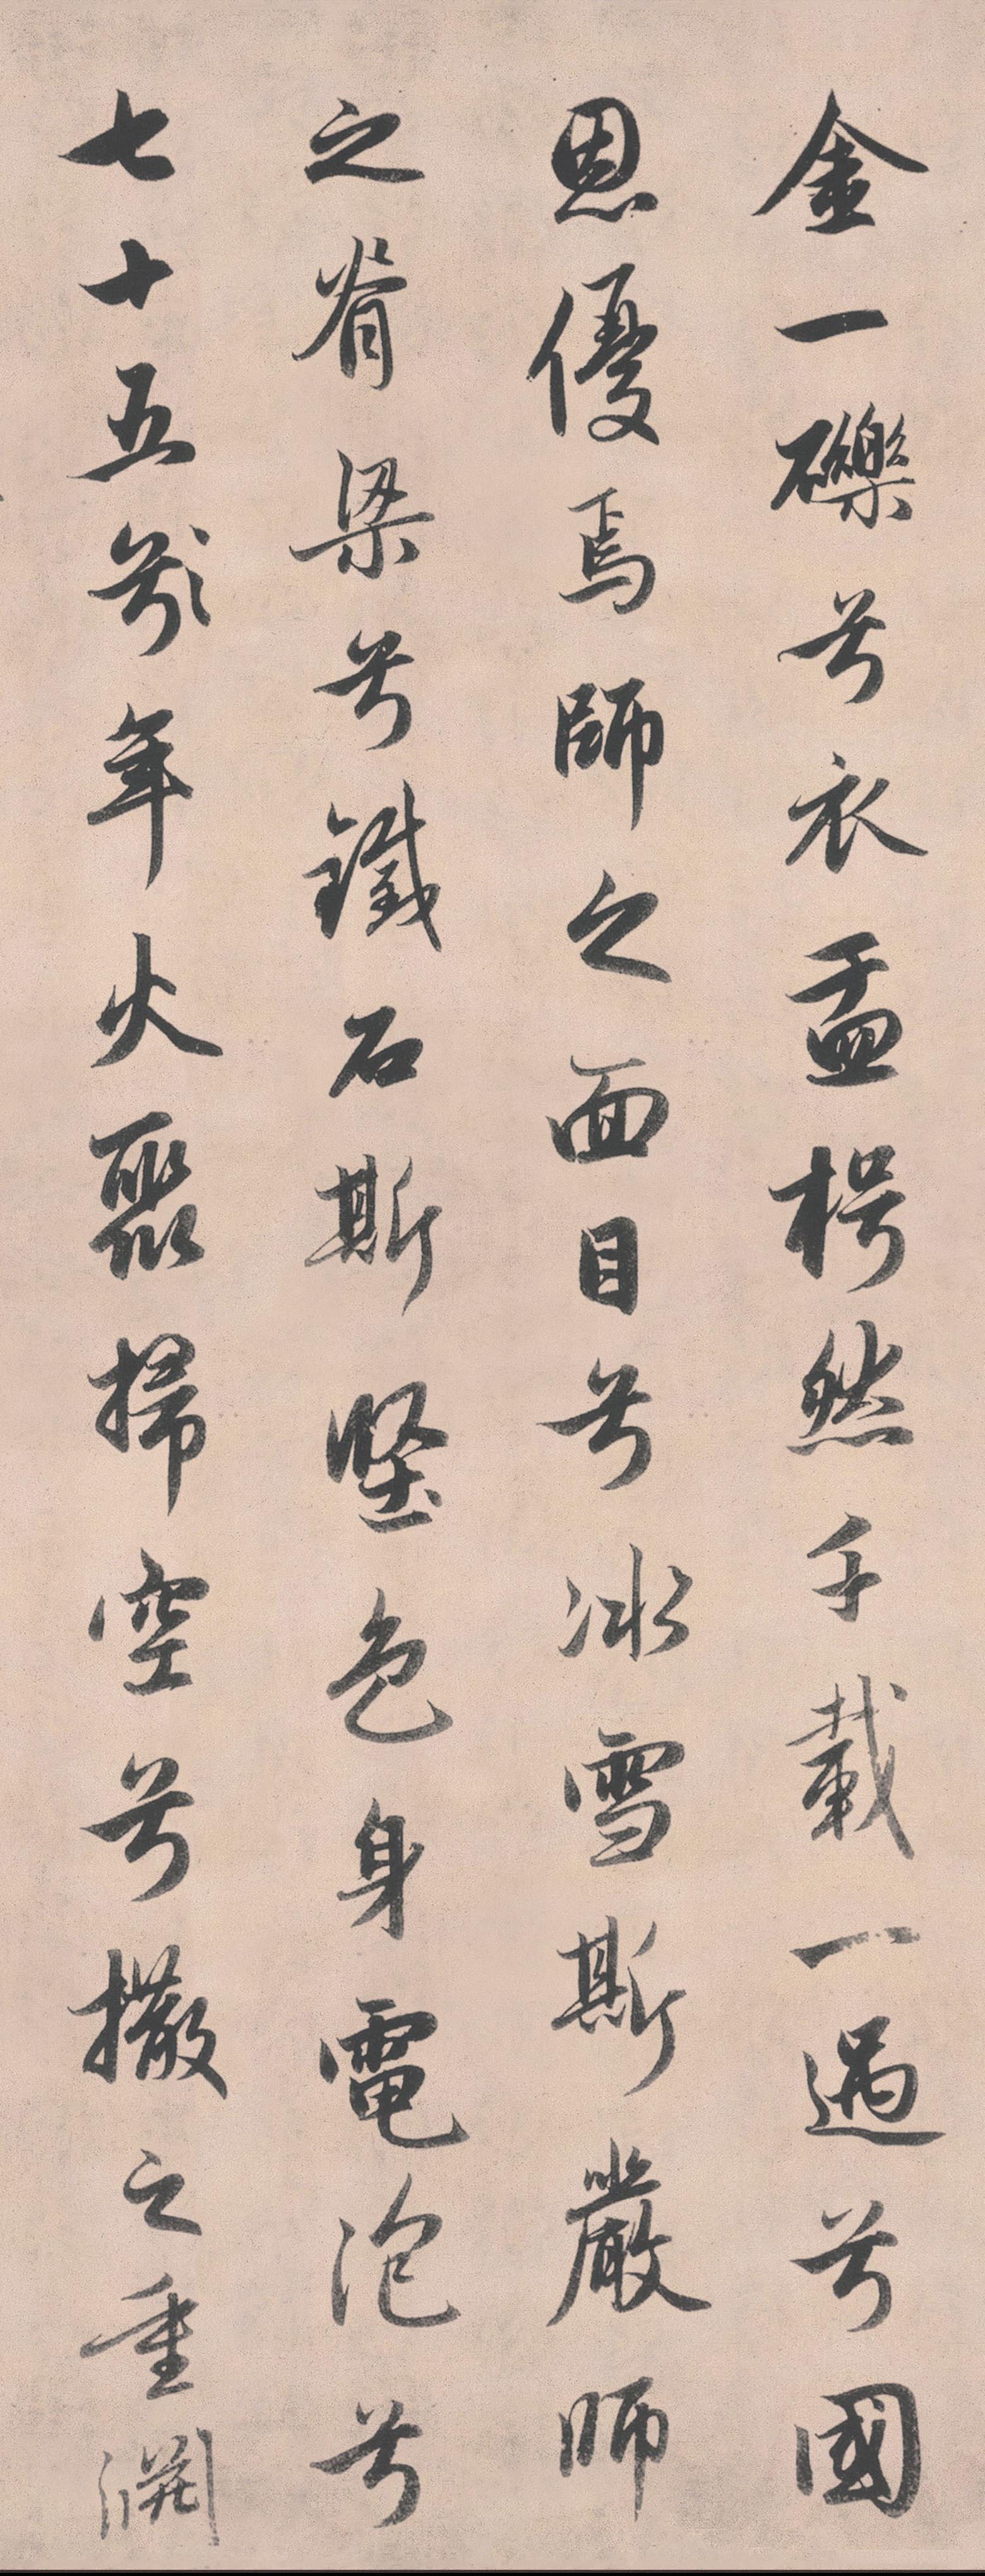 金一礫兮衣盂枵然千載一遇兮國
恩優焉師之面目兮冰雪斯嚴師
之脊梁兮鐵石斯堅色身電泡兮
七十五畝年火聚掃空兮撒之重淵